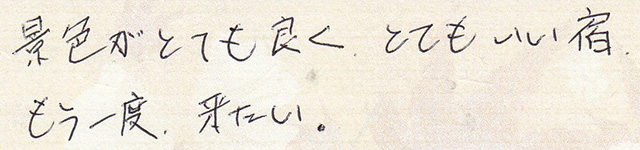 景色がとても良く、とてもいい宿、
もう一度、来たい。